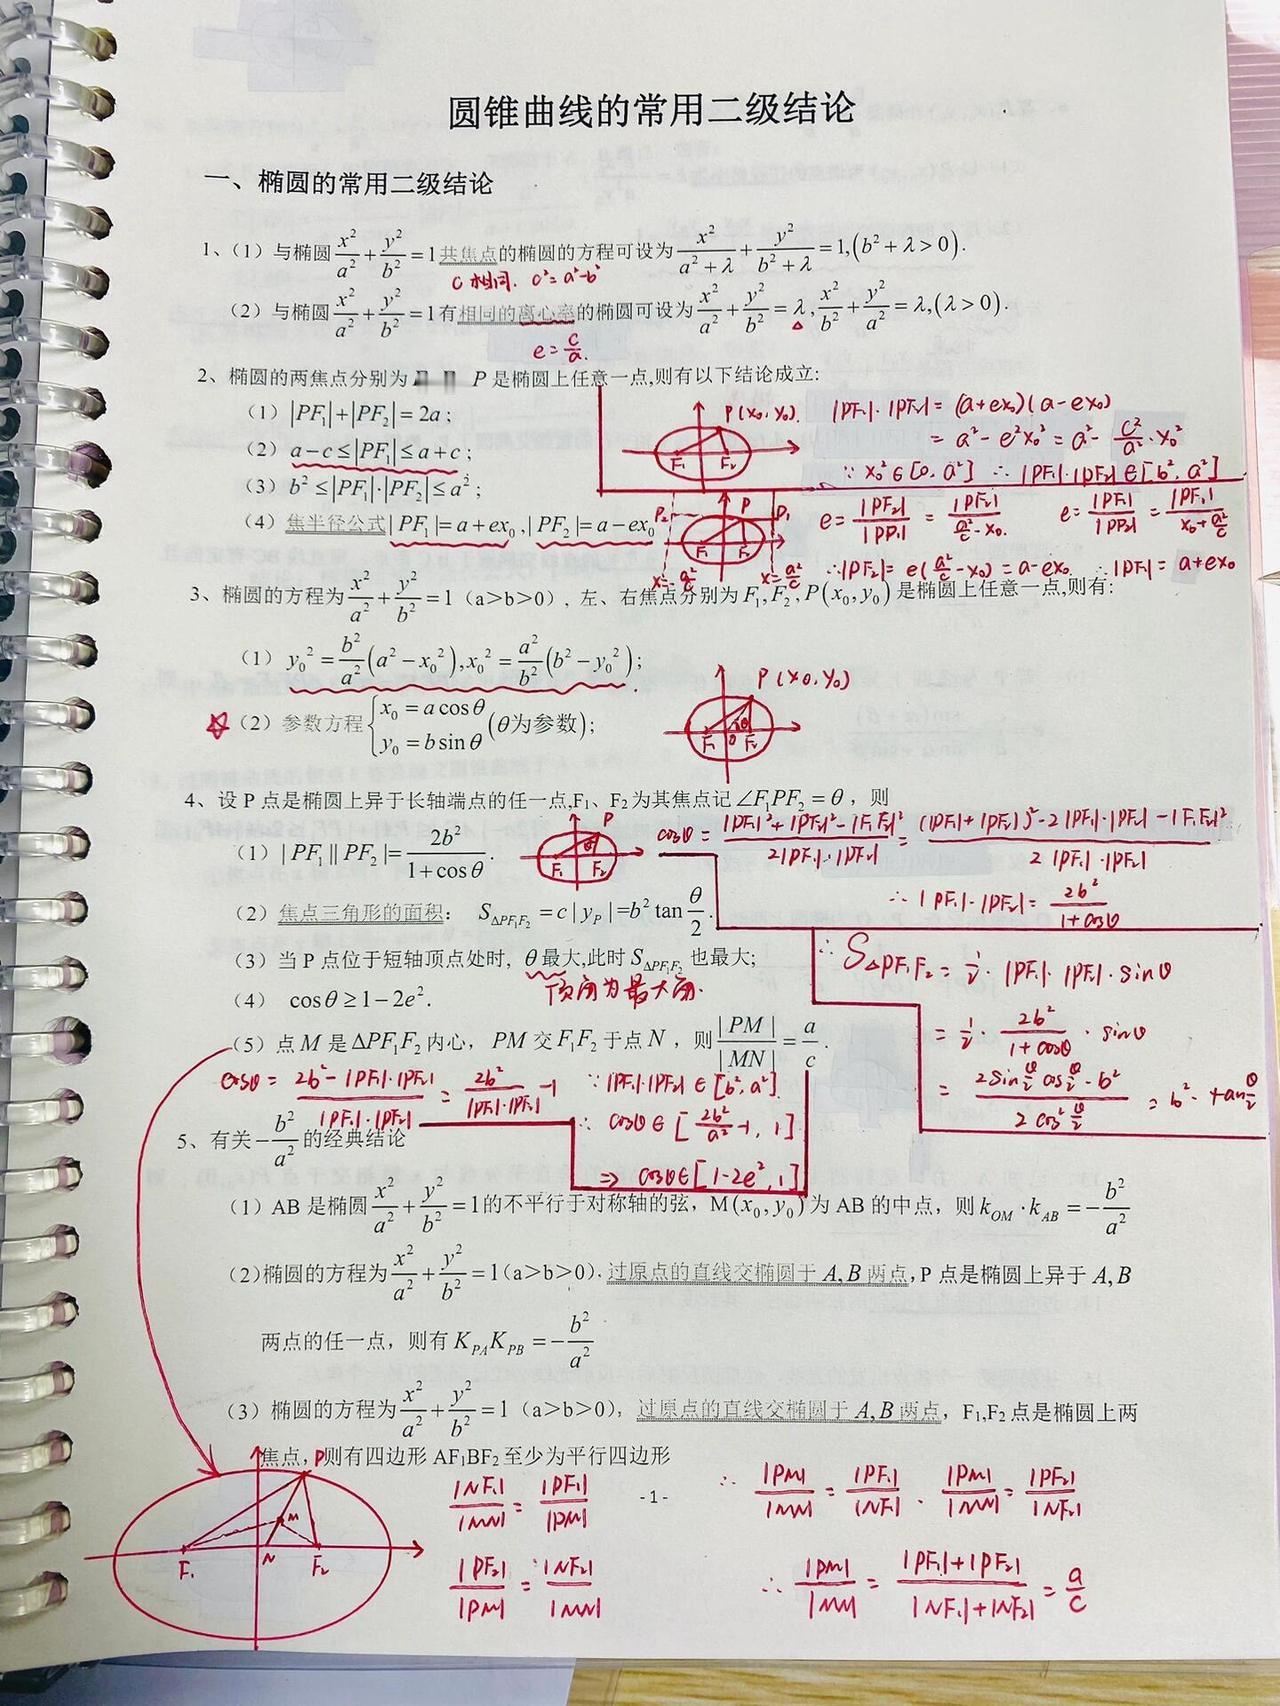 圆锥曲线的常用二级结论
一、椭圆的常用二级结论
1、（1）与椭圆 x²/a² + y²/b² = 1 共焦点的椭圆的方程可设为 x²/(a²+λ) + y²/(b²+λ) = 1,(b²+λ>0).
C相同. c²=a²-b²
（2）与椭圆 x²/a² + y²/b² = 1 有相同的离心率的椭圆可设为 x²/a² + y²/b² = λ, x²/b² + y²/a² = λ,(λ>0).
e = c/a.
2、椭圆的两焦点分别为 P 是椭圆上任意一点,则有以下结论成立:
（1）|PF₁|+|PF₂|=2a;
（2）a-c≤|PF₁|≤a+c;
（3）b²≤|PF₁|·|PF₂|≤a²;
（4）焦半径公式|PF₁|=a+ex₀,|PF₂|=a-ex₀
P(x₀,y₀)
F₁ F₂
|PF₁|·|PF₂|=(a+ex₀)(a-ex₀)
=a²-e²x₀²=a²-c²/a²·x₀²
∵x₀²∈[0,a²] ∴|PF₁|·|PF₂|∈[b²,a²]
P₂ P P₁
F₁ F₂
x=-a²/c x=a²/c
e=|PF₂|/|PP₁|=|PF₂|/(a²/c-x₀) e=|PF₁|/|PP₂|=|PF₁|/(x₀+a²/c)
∴|PF₂|=e(a²/c-x₀)=a-ex₀. ∴|PF₁|=a+ex₀
3、椭圆的方程为 x²/a² + y²/b² = 1（a>b>0）, 左、右焦点分别为F₁,F₂,P(x₀,y₀)是椭圆上任意一点,则有:
（1）y₀²=b²/a²(a²-x₀²),x₀²=a²/b²(b²-y₀²);
☆（2）参数方程{x₀=acosθ
y₀=bsinθ (θ为参数);
P(x₀,y₀)
F₁ θ F₂
4、设 P 点是椭圆上异于长轴端点的任一点,F₁、F₂为其焦点记∠F₁PF₂=θ，则
（1）|PF₁||PF₂|=2b²/(1+cosθ).
P
θ
F₁ F₂
cosθ=(|PF₁|²+|PF₂|²-|F₁F₂|²)/(2|PF₁|·|PF₂|)=((|PF₁|+|PF₂|)²-2|PF₁|·|PF₂|-|F₁F₂|²)/(2|PF₁|·|PF₂|)
∴|PF₁|·|PF₂|=2b²/(1+cosθ)
（2）焦点三角形的面积: S△PF₁F₂=c|y_P|=b²tan θ/2.
（3）当 P 点位于短轴顶点处时, θ最大,此时 S△PF₁F₂ 也最大;
顶角为最大角.
（4）cosθ≥1-2e².
∴S△PF₁F₂=½·|PF₁|·|PF₂|·sinθ
=½·2b²/(1+cosθ)·sinθ
=(2sin θ/2 cos θ/2·b²)/(2cos² θ/2)=b²·tan θ/2
（5）点M是ΔPF₁F₂内心，PM交F₁F₂于点N，则|PM|/|MN|=a/c.
cosθ=(2b²-|PF₁|·|PF₂|)/(|PF₁|·|PF₂|)=2b²/(|PF₁|·|PF₂|)-1 ∵|PF₁|·|PF₂|∈[b²,a²]
∴cosθ∈[2b²/a²-1,1]
⇒cosθ∈[1-2e²,1]
5、有关-b²/a²的经典结论
（1）AB 是椭圆 x²/a² + y²/b² = 1的不平行于对称轴的弦，M(x₀,y₀)为 AB 的中点，则k_OM·k_AB=-b²/a²
（2）椭圆的方程为 x²/a² + y²/b² = 1（a>b>0）, 过原点的直线交椭圆于 A,B 两点, P 点是椭圆上异于 A,B
两点的任一点，则有K_PA K_PB=-b²/a²
（3）椭圆的方程为 x²/a² + y²/b² = 1（a>b>0），过原点的直线交椭圆于 A,B 两点，F₁,F₂点是椭圆上两
焦点，则有四边形 AF₁BF₂至少为平行四边形
P
M
F₁ N F₂
|NF₁|/|MN|=|PF₁|/|PM|
- 1 -
∴|PM|/|MN|=|PF₁|/|NF₁|、|PM|/|MN|=|PF₂|/|NF₂|
|PF₂|/|PM|=|NF₂|/|MN|
∴|PM|/|MN|=(|PF₁|+|PF₂|)/(|NF₁|+|NF₂|)=a/c